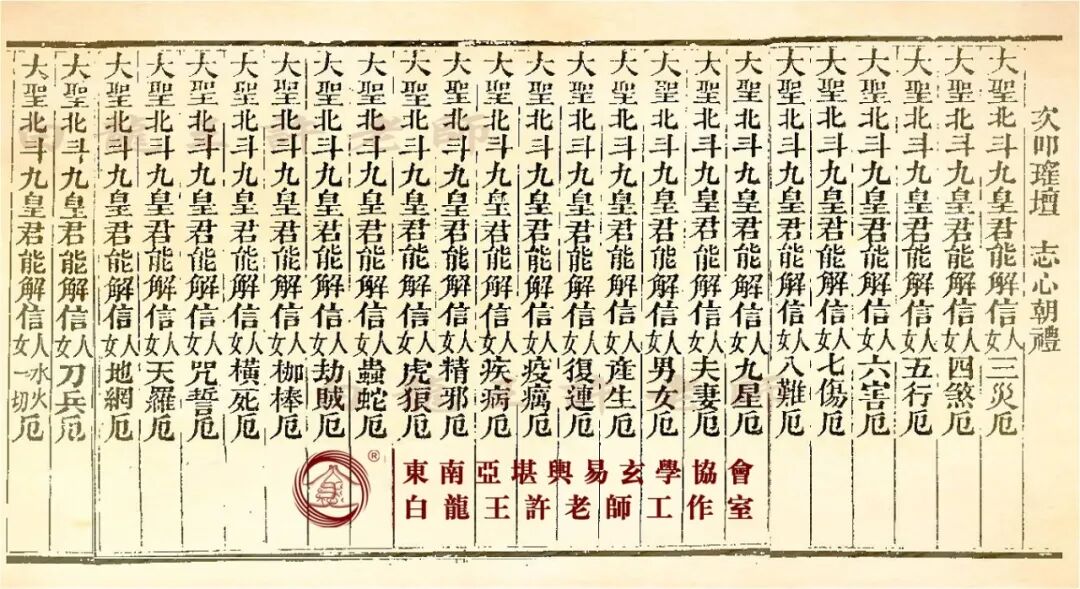 次叩壇　志心朝禮
大聖北斗九皇君能解信人女三災厄
大聖北斗九皇君能解信人女四煞厄
大聖北斗九皇君能解信人女五行厄
大聖北斗九皇君能解信人女六害厄
大聖北斗九皇君能解信人女七傷厄
大聖北斗九皇君能解信人女八難厄
大聖北斗九皇君能解信人女九星厄
大聖北斗九皇君能解信人女夫妻厄
大聖北斗九皇君能解信人女男女厄
大聖北斗九皇君能解信人女產生厄
大聖北斗九皇君能解信人女復連厄
大聖北斗九皇君能解信人女疫癘厄
大聖北斗九皇君能解信人女疾病厄
大聖北斗九皇君能解信人女精邪厄
大聖北斗九皇君能解信人女虎狼厄
大聖北斗九皇君能解信人女蟲蛇厄
大聖北斗九皇君能解信人女劫賊厄
大聖北斗九皇君能解信人女枷棒厄
大聖北斗九皇君能解信人女橫死厄
大聖北斗九皇君能解信人女咒誓厄
大聖北斗九皇君能解信人女天羅厄
大聖北斗九皇君能解信人女地網厄
大聖北斗九皇君能解信人女刀兵厄
大聖北斗九皇君能解信人女水火一切厄
®
東南亞堪輿易玄學協會
白龍王許老師工作室